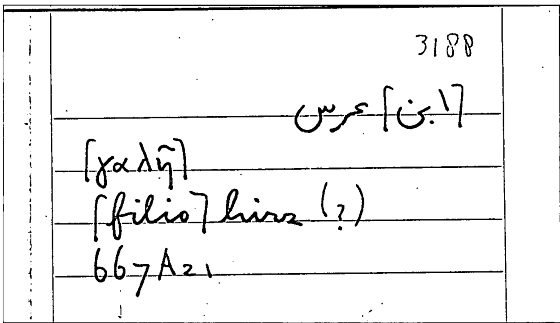 3188
[ابن] عرس
[γαλῆ]
[filio] hirz (?)
667A21